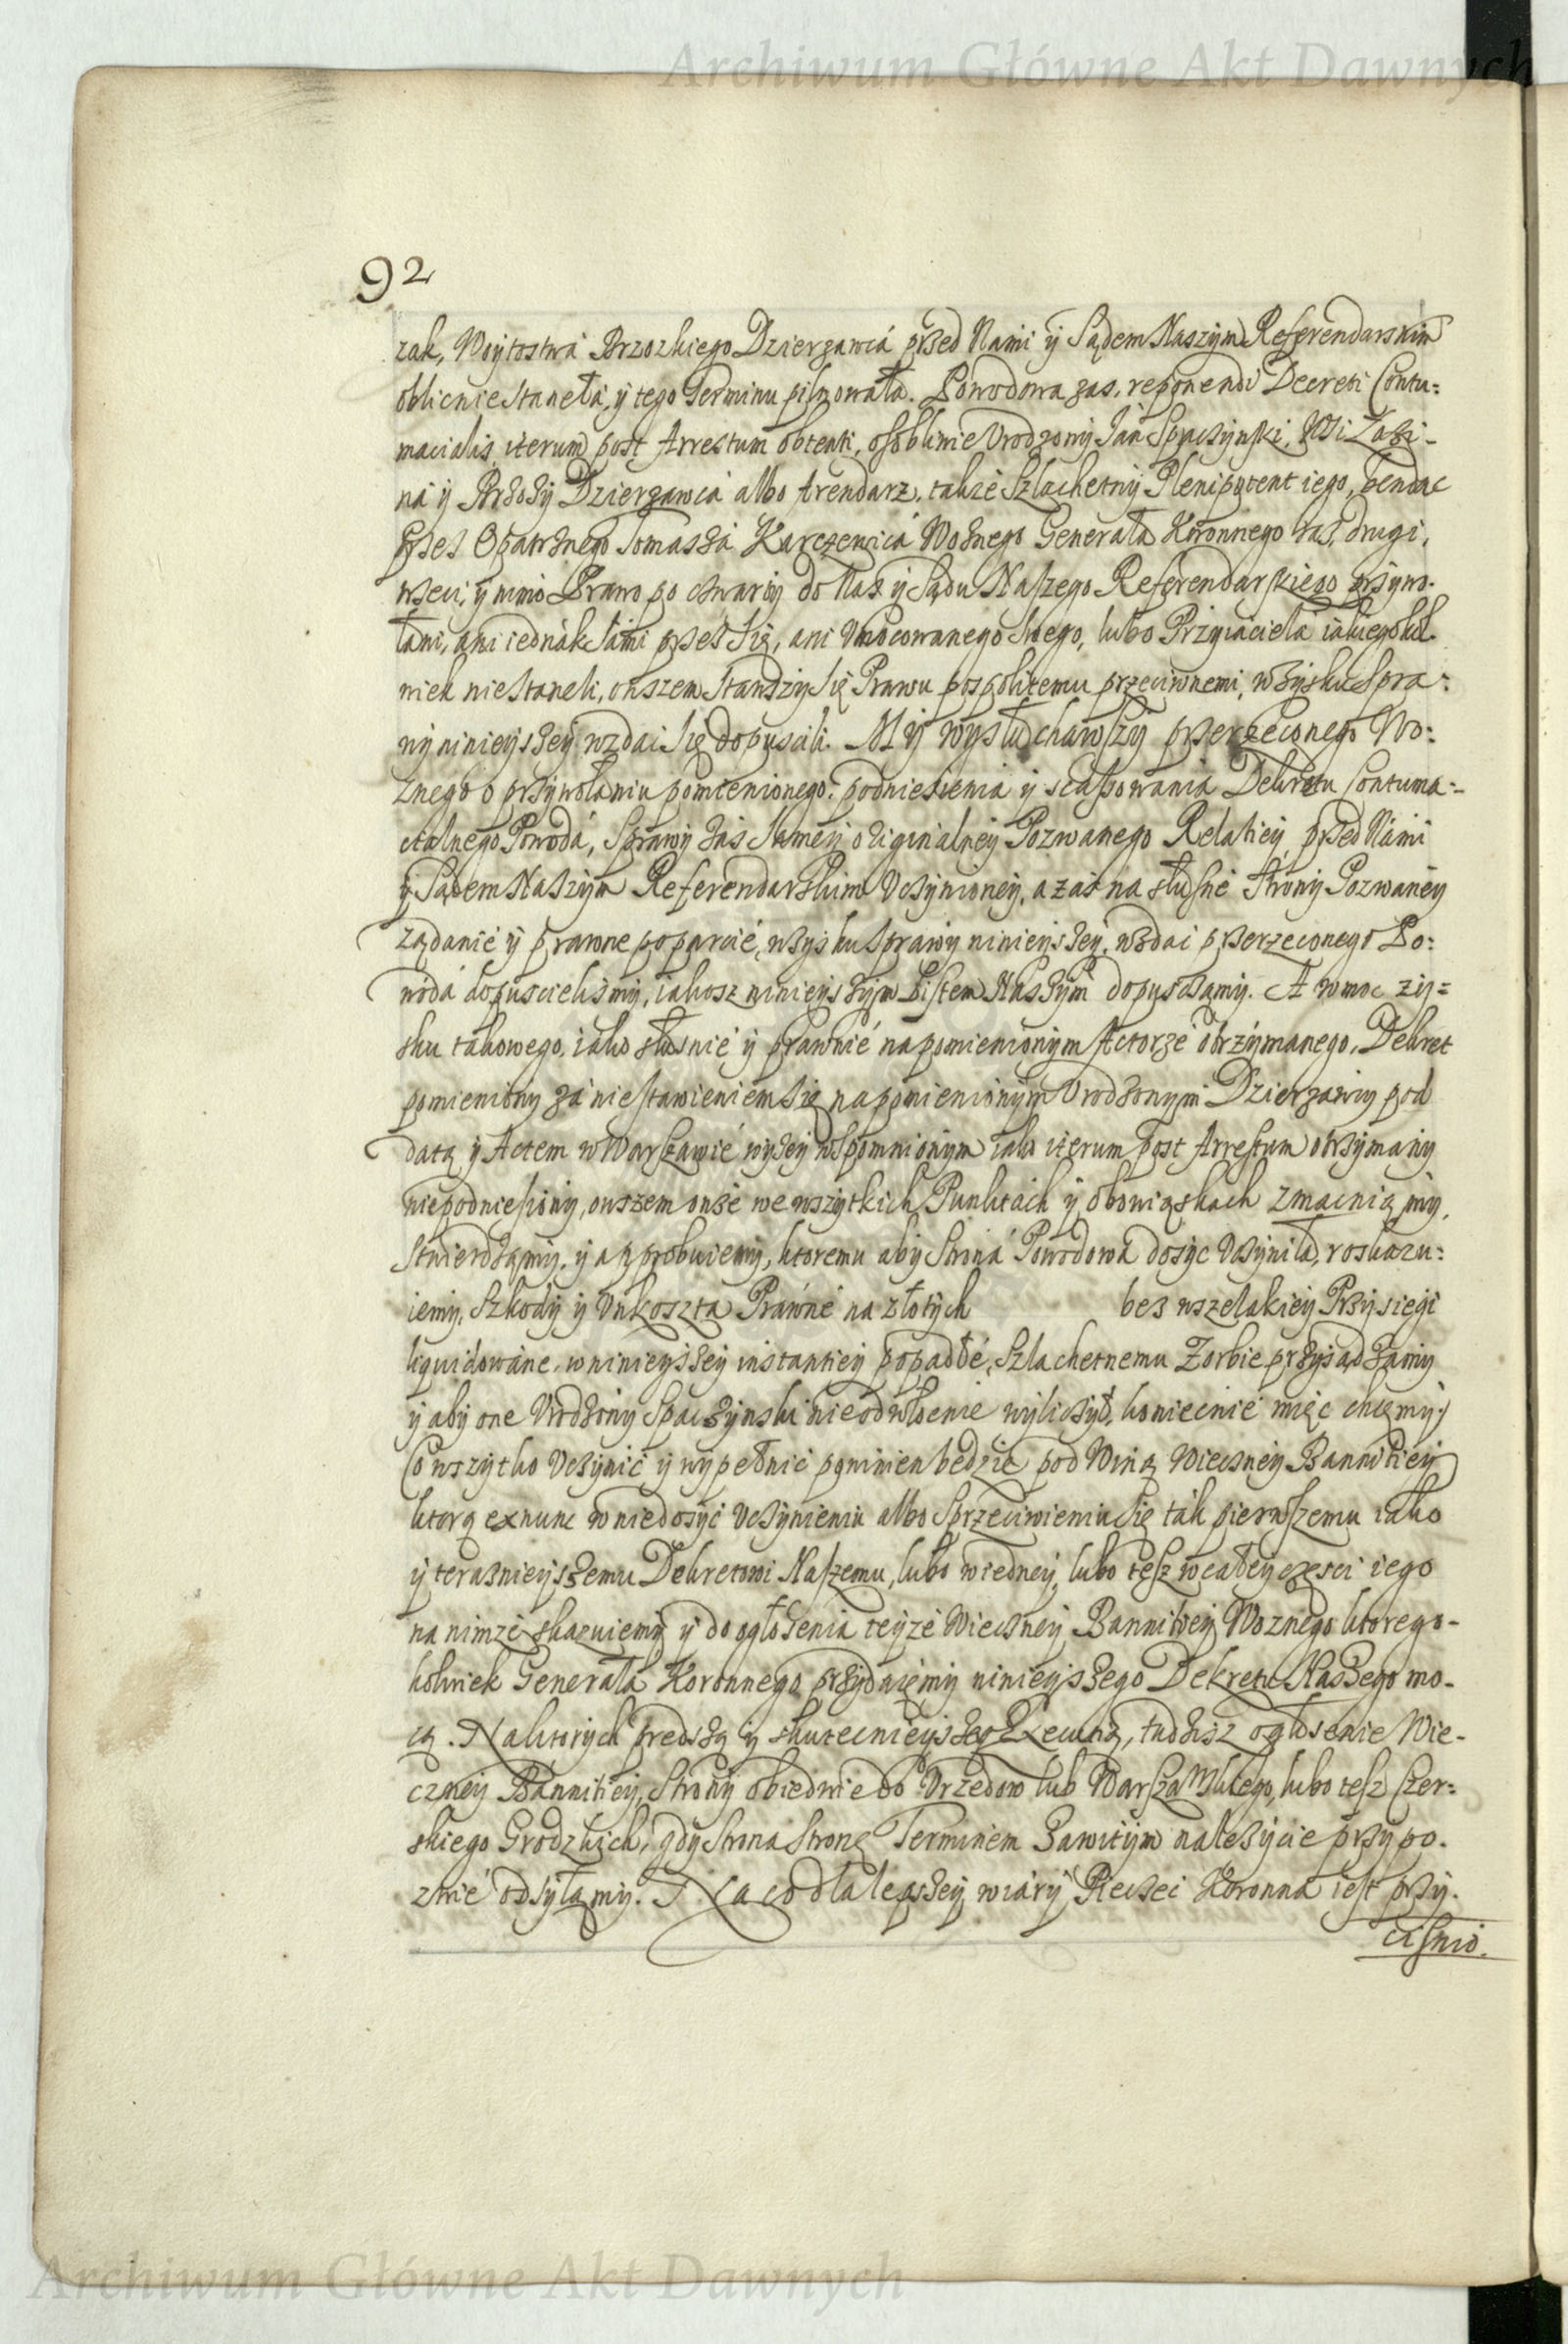 Archiwum Główne Akt Dawnych
92
zak, Woytostwa Brzozkiego Dzierzawca przed Nami y Sądem Naszym Referendarskim
oblicnie stanęła, y tego Terminu pilnowała. Powodowa zas, reponendi Decreti Contu=
macialis iterum post Arrestum obtenti, osobliwie Urodzony Jan Spaczynski, Wsi Zazi-
na y Brzozy Dzierzawca albo Arendarz, takze Szlachetny Plenipotent iego, bendąc
przez Opatrznego Tomasza Karczewica Woznego Generała Koronnego raz, drugi,
trzeci, y mimo Prawo po czwarty do Nas y Sądu Naszego Referendarskiego przywo-
łani, ani iednak sami przez się, ani Umocowanego swego, lubo Przyiaciela iakiegokol-
wiek nie staneli, owszem stawszy się Prawu pospolitemu przeciwnemi, w zysku Spra=
wy ninieyszey wzdai się dopuscili. My wysłuchawszy przerzeconego Wo=
znego o przywołaniu pomienionego, podniesienia y scassowania Dekretu Contuma=
cialnego Powoda, Sprawy zas samey originalney Pozwanego Relatiey przed Nami
y Sądem Naszym Referendarskim Uczynioney, a zas na słuszne Strony Pozwaney
ządanie y prawne poparcie, w zysku Sprawy ninieyszey, wzdai przerzeconego Po=
woda dopuscielismy, iakosz ninieyszym Listem Naszym dopusczamy. A w moc zy=
sku takowego, iako słusnie y prawnie na pomienionym Actorze otrzymanego, Dekret
pomieniony za niestawieniem się na pomienionym Urodzonym Dzierzawcy pod
datą y Actem w Warszawie wyzey wspomnionym iako iterum post Arrestum otrzymany
niepodniesiony, owszem onze we wszytkich Punktach y obowiązkach zmacniamy,
stwierdzamy, y approbuiemy, ktoremu aby Strona Powodowa dosyc Uczyniła, roskazu=
iemy, Szkody y Unkoszta Prawne na złotych bez wszelakiey Przysiegi
liquidowane, w ninieyszey instantiey popadłe, Szlachetnemu Zorbie przysądzamy
y aby one Urodzony Spaczynski nieodwłocnie wyliczył, koniecnie miec chcemy
Co wszytko Uczynic y wypełnic powinien będzie pod Winą Wieczney Bannitiey
ktorą ex nunc w niedosyc Uczynieniu albo Sprzeciwieniu się tak pierwszemu iako
y teraznieyszemu Dekretowi Naszemu, lubo w iedney, lubo tesz w całey częsci iego
na nimze skazuiemy y do ogłoszenia teyze Wieczney Bannitiey Woznego ktorego-
kolwiek Generała Koronnego przydaiemy ninieyszego Dekretu Naszego mo-
cą. Na ktorych prędszą y skutecnieyszą Execucią, tudzisz ogłosenie Wie-
czney Bannitiey, Strony obiedwie do Urzedow lub Warszawskiego, lubo tesz Czer=
skiego Grodzkich, gdy Strona Stronę Terminem Zawitym nalezycie przypo-
zwie odsyłamy. Na co dla lepszey wiary Pieczęć Koronna iest przy-
cisnio.
Archiwum Główne Akt Dawnych